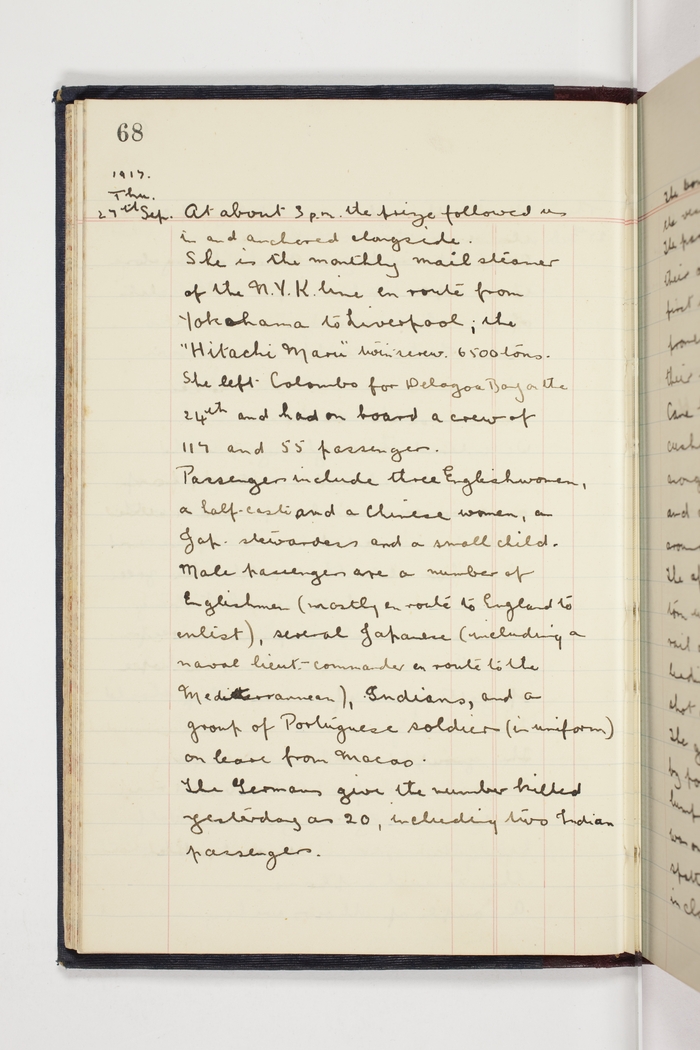 68
1917.
Thu.
27th Sep. At about 3 p.m. the prize followed us
in and anchored alongside.
She is the monthly mail steamer
of the N.Y.K. line en route from
Yokohama to Liverpool; the
"Hitachi Maru" twin screw. 6500 tons.
She left Colombo for Delagoa Bay on the
24th and had on board a crew of
117 and 55 passengers.
Passengers include three Englishwomen,
a half-caste and a Chinese women, a
Jap. stewardess and a small child.
Male passengers are a number of
Englishmen (mostly en route to England to
enlist), several Japanese (including a
naval lieut.-commander en route to the
Mediterrannean), Indians, and a
group of Portuguese soldiers (in uniform)
on leave from Macao.
The Germans give the number killed
yesterday as 20, including two Indian
passengers.
the
the
the
their
first
their
Cave
and
The
shot
The
by
in